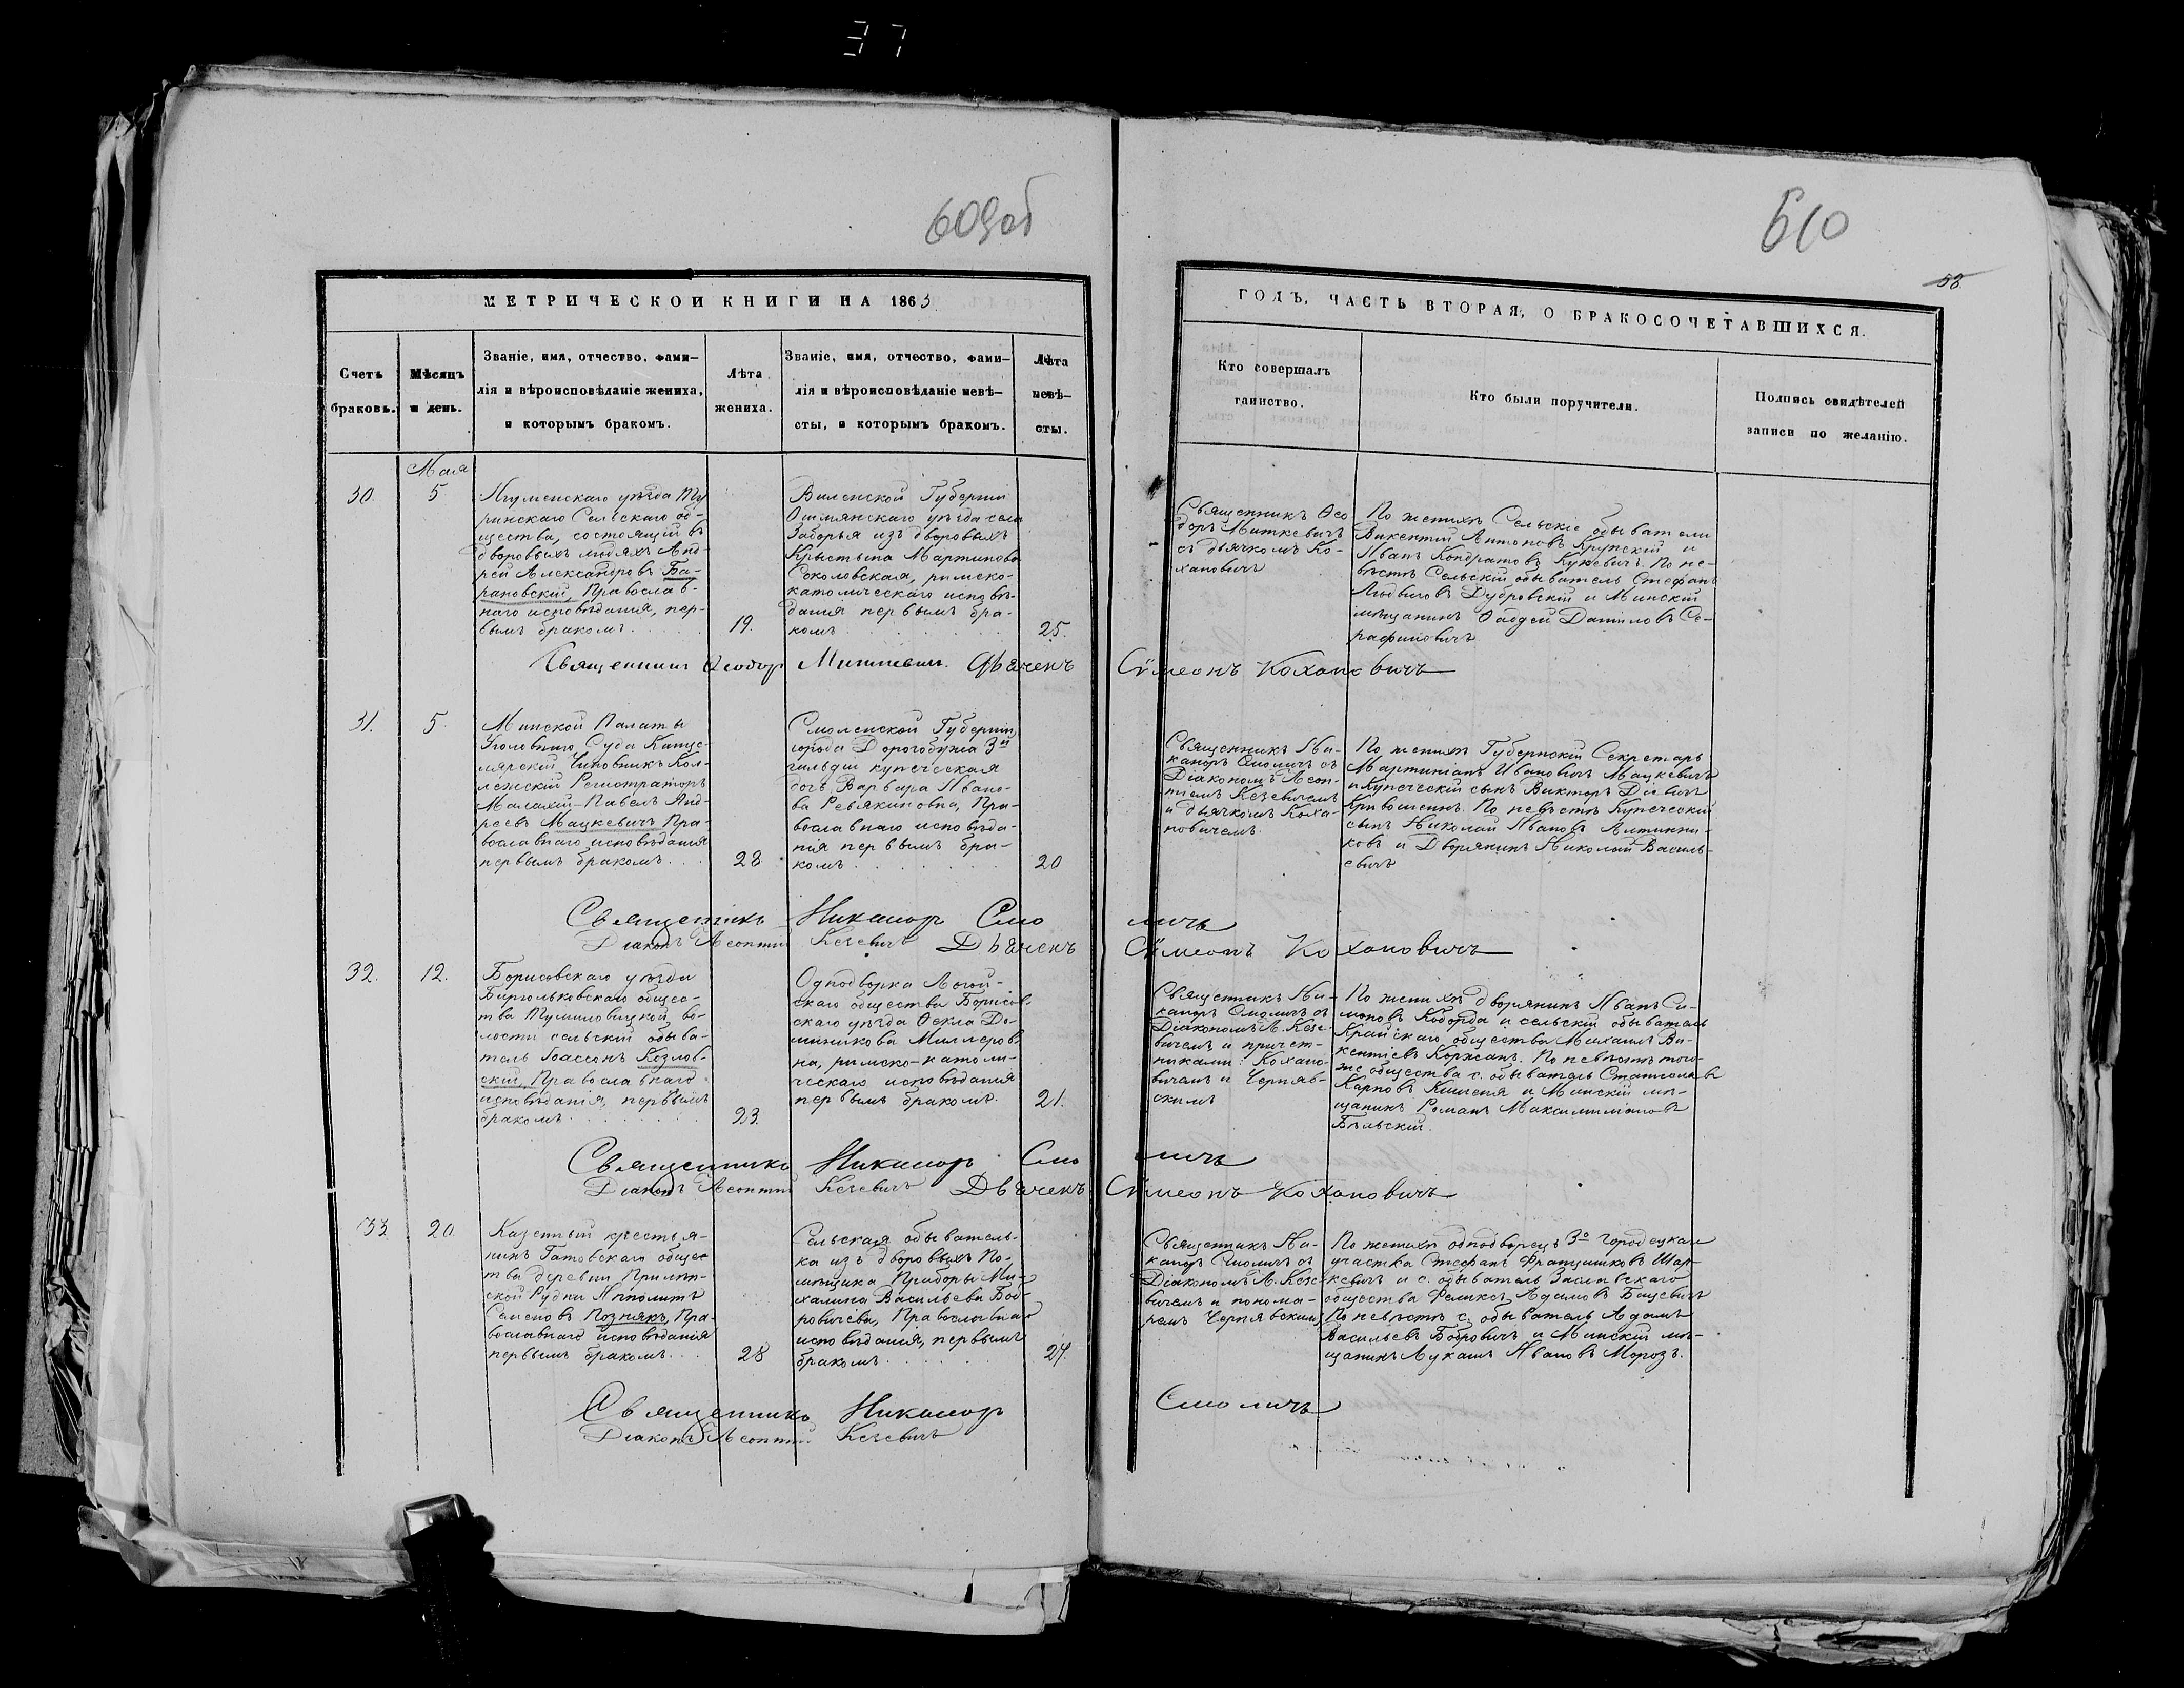 37
609об
610
58
МЕТРИЧЕСКОЙ КНИГИ НА 1863
ГОДЪ, ЧАСТЬ ВТОРАЯ, О БРАКОСОЧЕТАВШИХСЯ.
Счетъ
браковъ.
Мѣсяцъ
и день.
Званіе, имя, отчество, фами-
лія и вѣроисповѣданіе жениха,
и которымъ бракомъ.
Лѣта
жениха.
Званіе, имя, отчество, фами-
лія и вѣроисповѣданіе невѣ-
сты, и которымъ бракомъ.
Лѣта
невѣ-
сты.
Кто совершалъ
таинство.
Кто были поручители.
Подпись свидѣтелей
записи по желанію.
Мая
30.
5
Игуменскаго уѣзда Ту
ринскаго Сельскаго об-
щества, состоящій въ
дворовыхъ людяхъ Анд-
рей Александровъ Ба-
рановскій, Православ-
наго исповѣданія, пер-
вымъ бракомъ
19.
Виленской Губерніи
Ошмянскаго уѣзда села
Заборья изъ дворовыхъ
Крыстына Мартинова
Соколовская, римско-
католическаго исповѣ-
данія первымъ бра-
комъ
25.
Священникъ Ѳео
доръ Миткевичъ
съ дьячкомъ Ко-
хановичъ
По женихѣ Сельскіе обыватели
Викентій Антоновъ Крупскій и
Иванъ Кондратовъ Куневичъ. По не-
вѣстѣ Сельскій обыватель Стефанъ
Людвиговъ Дубровскій и Минскій
мѣщанинъ Ѳаддей Даниловъ Се-
рафиновичъ
Священникъ Ѳеодоръ Миткевичъ. Дьячекъ Сѵмеонъ Кохановичъ
31.
5.
Минской Палаты
Уголовнаго Суда Канце-
лярскій Чиновникъ Кол-
лежскій Регистраторъ
Малахій-Павелъ Анд-
реевъ Мацкевичъ Пра-
вославнаго исповѣданія
первымъ бракомъ
28
Смоленской Губерніи
города Дорогобужа 3й
гильдіи купеческая
дочь Варвара Ивано-
ва Ревякиновна, Пра-
вославнаго исповѣда-
нія первымъ бра-
комъ
20
Священникъ Ни-
каноръ Смоличъ съ
Діакономъ Леон-
тіемъ Кезевичемъ
и дьячкомъ Коха-
новичемъ.
По женихѣ Губернскій Секретарь
Мартиніанъ Ивановичъ Мацкевичъ
и Купеческій сынъ Викторъ
Кривошеинъ. По невѣстѣ Купеческій
сынъ Николай Ивановъ
ковъ и Дворянинъ Николай Василь-
евичъ
Священникъ Никаноръ Смоличъ
Діаконъ Леонтій Кезевичъ Дьячекъ Сѵмеонъ Кохановичъ
32.
12.
Борисовскаго уѣзда
общес-
тва во-
лости сельскій обыва-
тель Іоассонъ Козлов-
скій, Православнаго
исповѣданія, первымъ
бракомъ
23.
Однодворка Логой-
скаго общества Борисов-
скаго уѣзда Ѳекла До-
миникова Миллеров-
на, римско-католи-
ческаго исповѣданія
первымъ бракомъ.
21.
Священникъ Ни-
каноръ Смоличъ съ
Діакономъ Л. Кезе-
вичемъ и причет-
никами: Кохано-
вичемъ и Черняв-
скимъ
По женихѣ дворянинъ Иванъ Си-
моновъ Коборда и сельскій обыватель
Крайскаго общества Михаилъ Ви-
кентіевъ Коржанъ. По невѣстѣ того-
же общества с. обыватель Станиславъ
Карповъ Кишеня и Минскій мѣ-
щанинъ Романъ Максимиліановъ
Бѣльскій.
Священникъ Никаноръ Смоличъ
Діаконъ Леонтій Кезевичъ Дьячекъ Сѵмеонъ Кохановичъ
33
20
Казенный крестья-
нинъ Гатовскаго общес
тва деревни
ской Рудни Ипполитъ
Семеновъ Познякъ, Пра-
вославнаго исповѣданія
первымъ бракомъ
28
Сельская обыватель-
ка изъ дворовыхъ по-
мѣщика Приборы Ми-
халина Васильева Боб-
ровичева, Православнаго
исповѣданія, первымъ
бракомъ
24.
Священникъ Ни-
каноръ Смоличъ съ
Діакономъ Л. Кезе-
вичемъ и понома-
ремъ Чернявскимъ
По женихѣ однодворецъ 3го Городецкаго
участка Стефанъ Францишковъ Шар-
кевичъ и с. обыватель Заславскаго
общества Феликсъ Адамовъ Бацевичъ
По невѣстѣ с. обыватель Адамъ
Васильевъ Бобровичъ и Минскій мѣ-
щанинъ Лукашъ Ивановъ Морозъ.
Священникъ Никаноръ Смоличъ
Діаконъ Леонтій Кезевичъ